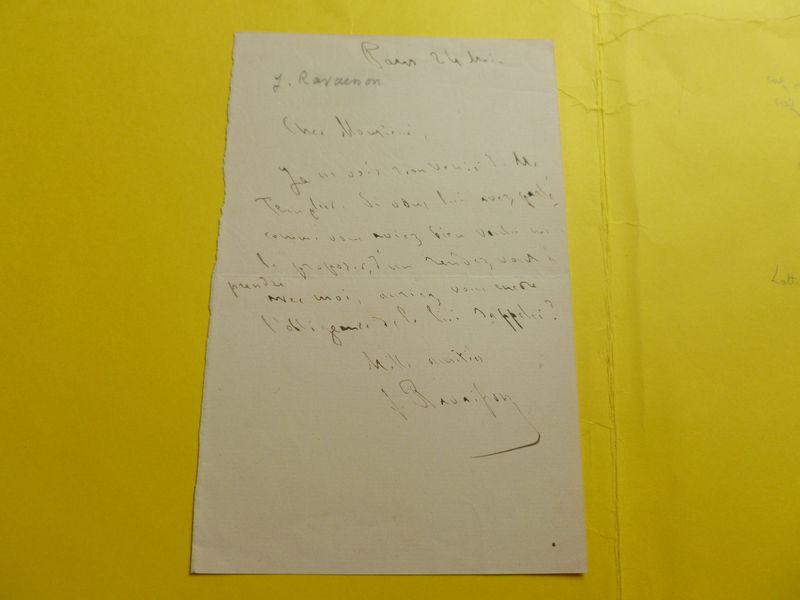 Paris 24 Mai
J. Ravaisson
Cher Monsieur,
Je ne vois rien venir d. M.
Templier. Si vous lui avez parlé
comme vous aviez bien voulu me
le proposer, d'un rendez vous à
prendre
avec moi, auriez vous encore
l'obligeance de le lui rappeler?
Mille amitiés
f Ravaisson